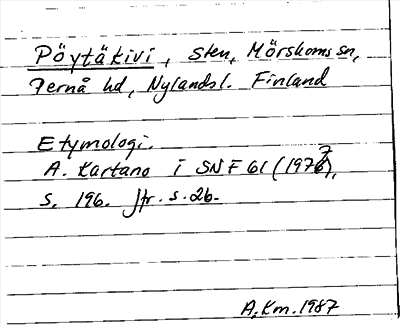 Pöytäkivi, sten, Mörskoms sn,
Pernå hd, Nylands l. Finland
Etymologi.
A. Kartano i SNF 61 (1977),
s. 196. Jfr. s. 26.
A.Km.1987